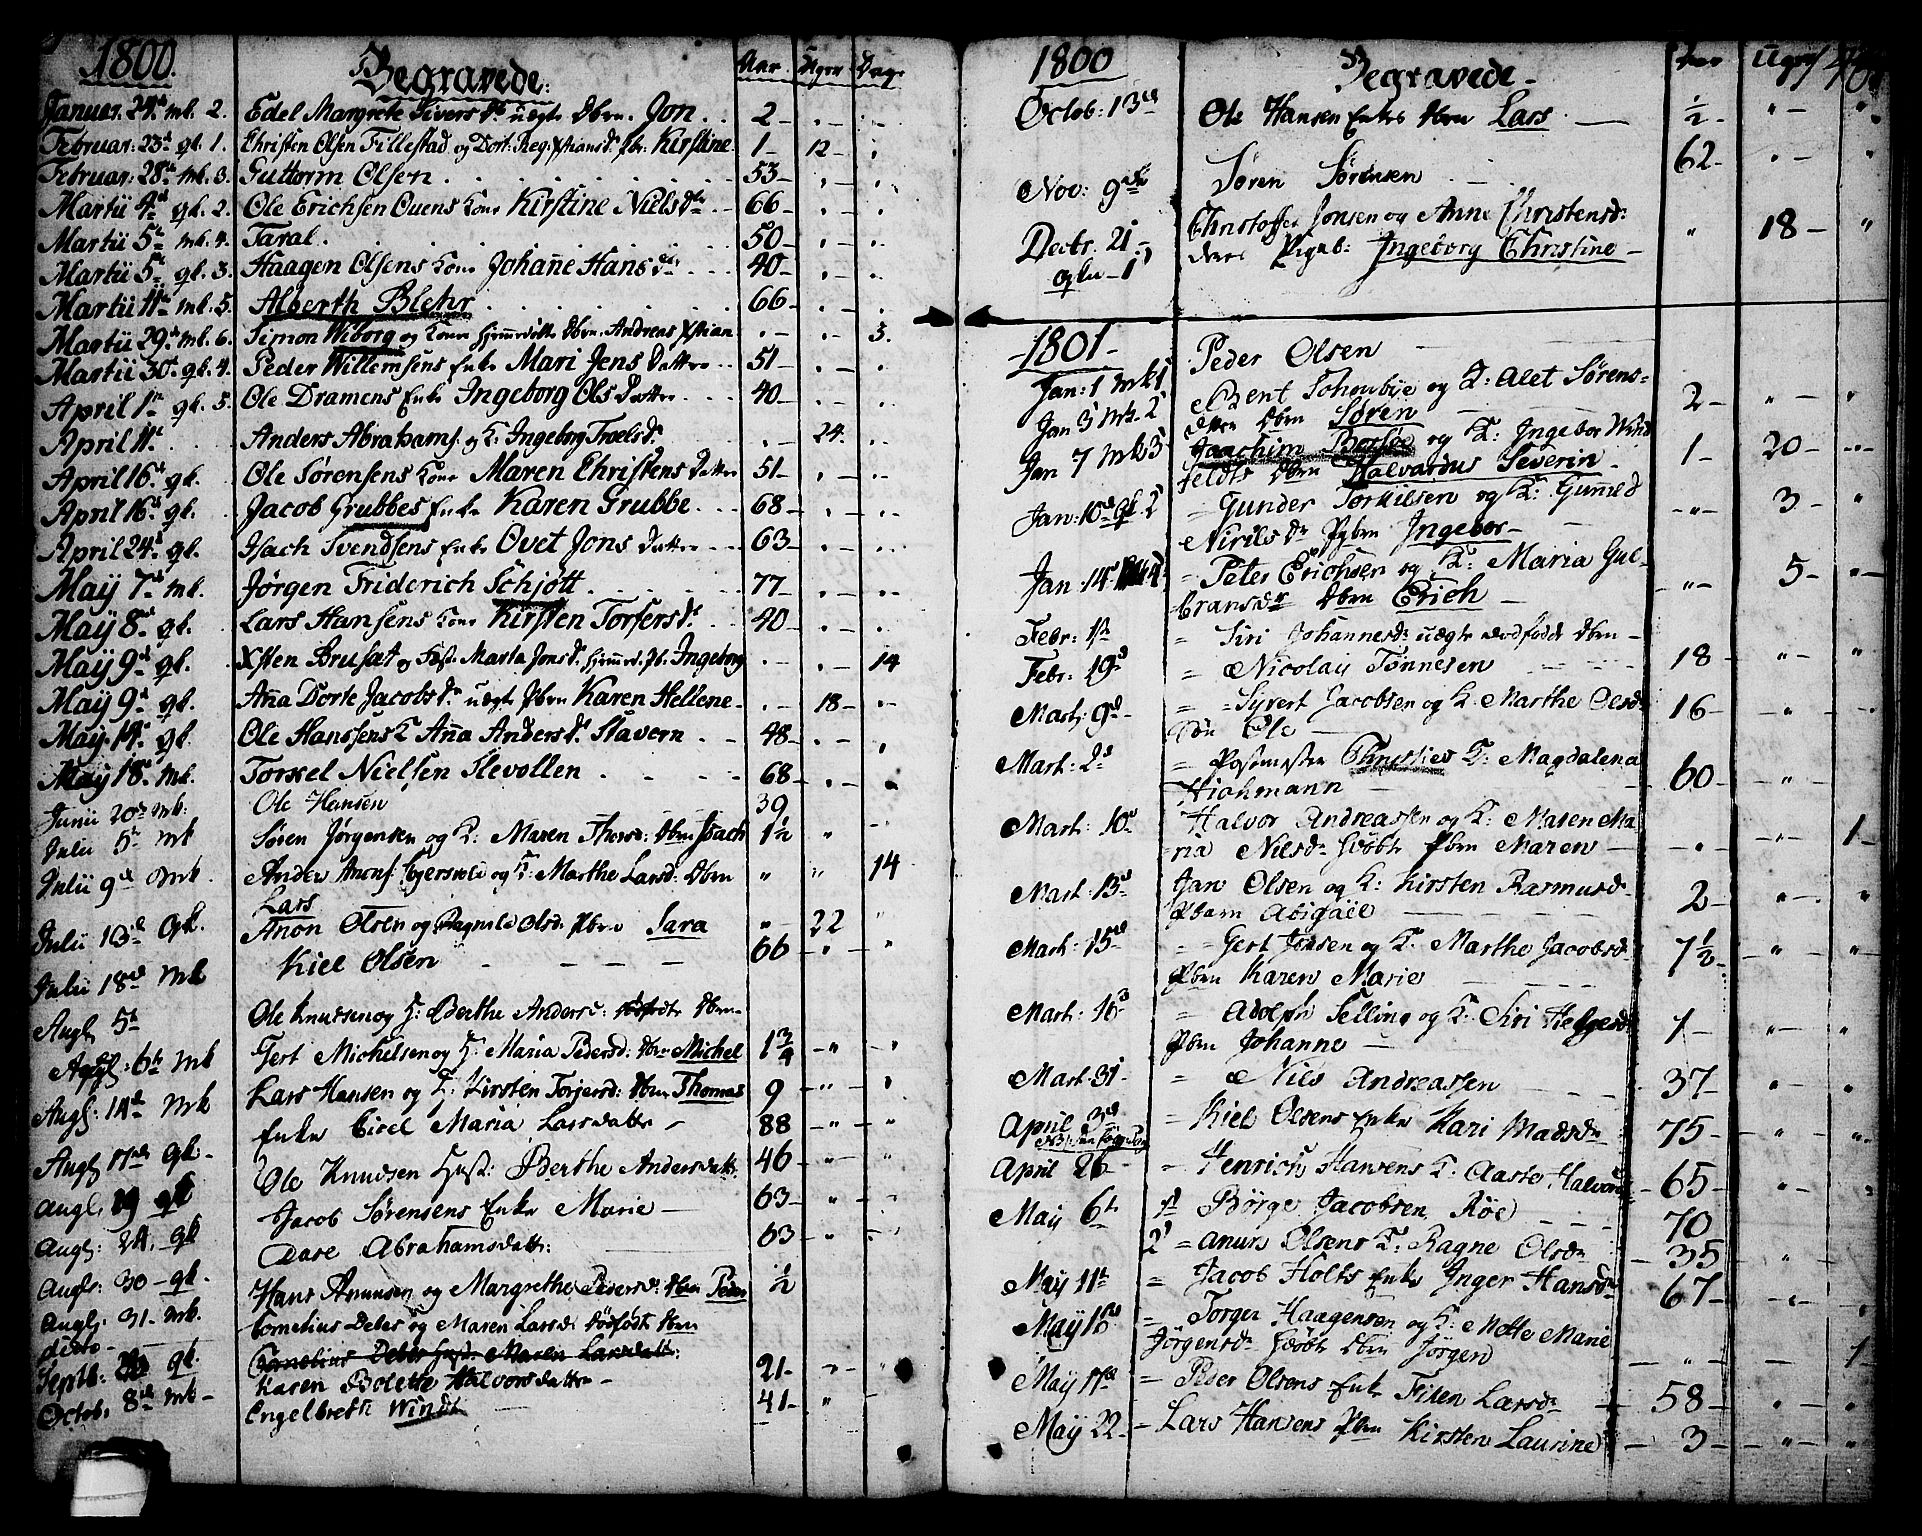 1800. Begravede. Aar Uger Dage
Januar. 24de mk. 2. Edel Margrete Siversdr uægte Dbrn. Jon . . 2 - . - .
Februar: 23de gk. 1. Christen Olsen Tillestad og Dort: Reg: Xstiansd. Pbr: Kirstine. 1 - 12 - .
Februar: 28de mk. 3. Guttorm Olsen . . . 53 - . - .
Martii 4de gk. 2. Ole Erichsen Ouens Kone Kirstine Nielsdr . . 66 - . - .
Martii 5te mk. 4. Taral . . . 50 - . - .
Martii 5te gk. 3. Haagen Olsens Kone Johanne Hansdr . . . 40 - . - .
Martii 11te mk. 5. Alberth Blehr . . . 66 - . - .
Martii 29de mk. 6. Simon Wiborg og Kones hjemmedøbte Dbrn. Andreas Xstian . - . - 3.
Martii 30te gk. 4. Peder Willemsens Enke Mari Jens Datter . . 51 - . - .
April 1te gk. 5. Ole Dramens Enke Ingeborg Ols Datter . . . 40 - . - .
April 11te Anders Abrahams. og K. Ingeborg Troelsdr . - 24. . .
April 16de gk. Ole Sørensens Kone Maren Christens Datter 51 - . - .
April 16de gk. Jacob Grubbes Enke Karen Grubbe . . 68 - . - .
April 24de gk. Isach Svendsens Enke Ovet Jons Datter . . 63 - . .
May 7de mk. Jörgen Friderich Schjøtt . . . 77 - . - .
May 8de gk. Lars Hansens Kone Kirsten Torfersdr . . 40 - . - .
May 9de gk. Xsten Brusat og Fæst. Marta Jonsd. hjemmed. Pb. Ingeborg . - . - 14
May 9de gk. Anna Dorte Jacobsdr uægt. Pbrn Karen Hellene . . - 18 - .
May 14de gk. Ole Hanssens K Anna Andersdr. Stavern . - 48 - . - .
May 18de mk. Torkel Nielsen Slevollen . . . 68 - . - .
Junii 20de mk: Ole Hansen 39
Julii 5te mk Søren Jørgensen og K: Maren Thorsd: Dbrn Isach 1½ " - -
Julii 9de mk. Anders Anons: Egersvold og K: Marthe Larsd: Dbrn " " 14
Lars
Julii 13de Gk. Anon Olsen og Ragnild Olsd: Pbrn Sara " - 22 "
Julii 18de mk Kiel Olsen - - - 66 - . - "
Augl. 5te Ole Knudsen og H: Berthe Andersd: dødfødte Dbrn -
Augl: 6te mk Gert Michelsen og H: Maria Pedersd: Dbrn Michel 1¾ - " - "
Augl: 14de mk Lars Hansen og K. Kirsten Torjersd: Dbrn Thomas 9 - " - "
Augl 17de gk - Enke Cicel Maria Larsdatter - 88 - " - "
Augl. 19 gk Ole Knudsen Hust: Berthe Andersdatt. 46 - " - "
Augl: 24. gk Jacob Sørensens Enke Marie - 63 - " - "
Augl: 30 - gk. Aase Abrahamsdatter: 63 - " - "
Augl: 31. mk. Hans Amunsen og Margrethe Pedersd: Dbrn Peder ½ " "
ditto - Cornelius Deles og Maren Larsd: dødfødt Dbrn
Cornelius Deles Hust: Maren Larsdatt:
Septb: gk. Karen Bolette Halvorsdatter - 21 - " "
Octob. 8de mk - Engelbreth Windt 41 - "
1800 Begravede - Aar Uger
Octob: 13de Ole Hansens Enkes Dbrn Lars . ½ " - "
Nov: 9de Søren Sørensen . - 62 - " - "
Decbr. 21 - Christoffer Jonsen og Anne Christensd:
gk - 1 deres Pigeb: Ingeborg Christine - " 18 - "
1801 -
Jan: 1 mk 1 Peder Olsen - -
Jan 3 mk. 2 Bent Tohoubye og K: Alet Sørens=
datter Dbrn Søren - 2 - " - "
Jan 7 mk 3 Joachim Borsøe og K: Ingebor Wind
feldts Dbrn Halvardus Severin - 1 - 20 - "
Jan: 10de gk 2 - Gunder Torkilsen og K: Gunild
Nirilsdr Pbrn Ingebor - - " - 3 - "
Jan: 14 mk 4 = Peter Erichsen og K: Maria Gul=
bransdr Dbrn Erich - - " - 5 - "
Febr: 1te = Siri Johannesdr uægte dødfødde Dbrn -
Febr: 19de = Nicolay Tønnesen 18 - " - "
Mart: 9de - = Syvert Jacobsen og K Marthe Olsdr
Søn Ole - 16 - " - "
Mart: 2de = Postmester Christies K: Magdalena
Hiohmann - 60 - " -
Mart: 10de Halvor Andreassen og K: Maren Ma
ria Nilsdr hiøbt Pbrn Maren - - . - " - 1
Mart: 13de Jan Olsen og K: Kirsten Rasmusdr
Pbarn Abigäel - 2 - " "
Mart: 15de = Gert Jonsen og K. Marthe Jacobsdr
Pbrn Karen Marie 7½ - " "
Mart: 16de = Adolph Selling og K: Siri Helgesdr
Pbrn Johanne - 1 - " - "
Mart: 31 - = Nils Andreassen - 37 - " - "
April 3de = Kiel Olsens Enke Kari Madsdr 75 - " - "
April 26 - = Henrich Hansens K: Aaste Halvorsdr - 65 - " - "
May 6te 1te Børge Jacobsen Røe - - 70 -
2 = Anurs Olsens K: Ragne Olsdr - 35 - "
May 11te = Jacob Holts Enke Inger Hansdr 67 - " - "
May 16de = Torger Haagensen og K: Mette Marie
Jörgensdr hiøbte Dbrn Jörgen - " - - 1
May 17de = Peder Olsens Enke Siken Larsdr - 58 - . - .
May 22 - - Lars Hansens Pbrn Kirsten Laurine - 3 - " - "